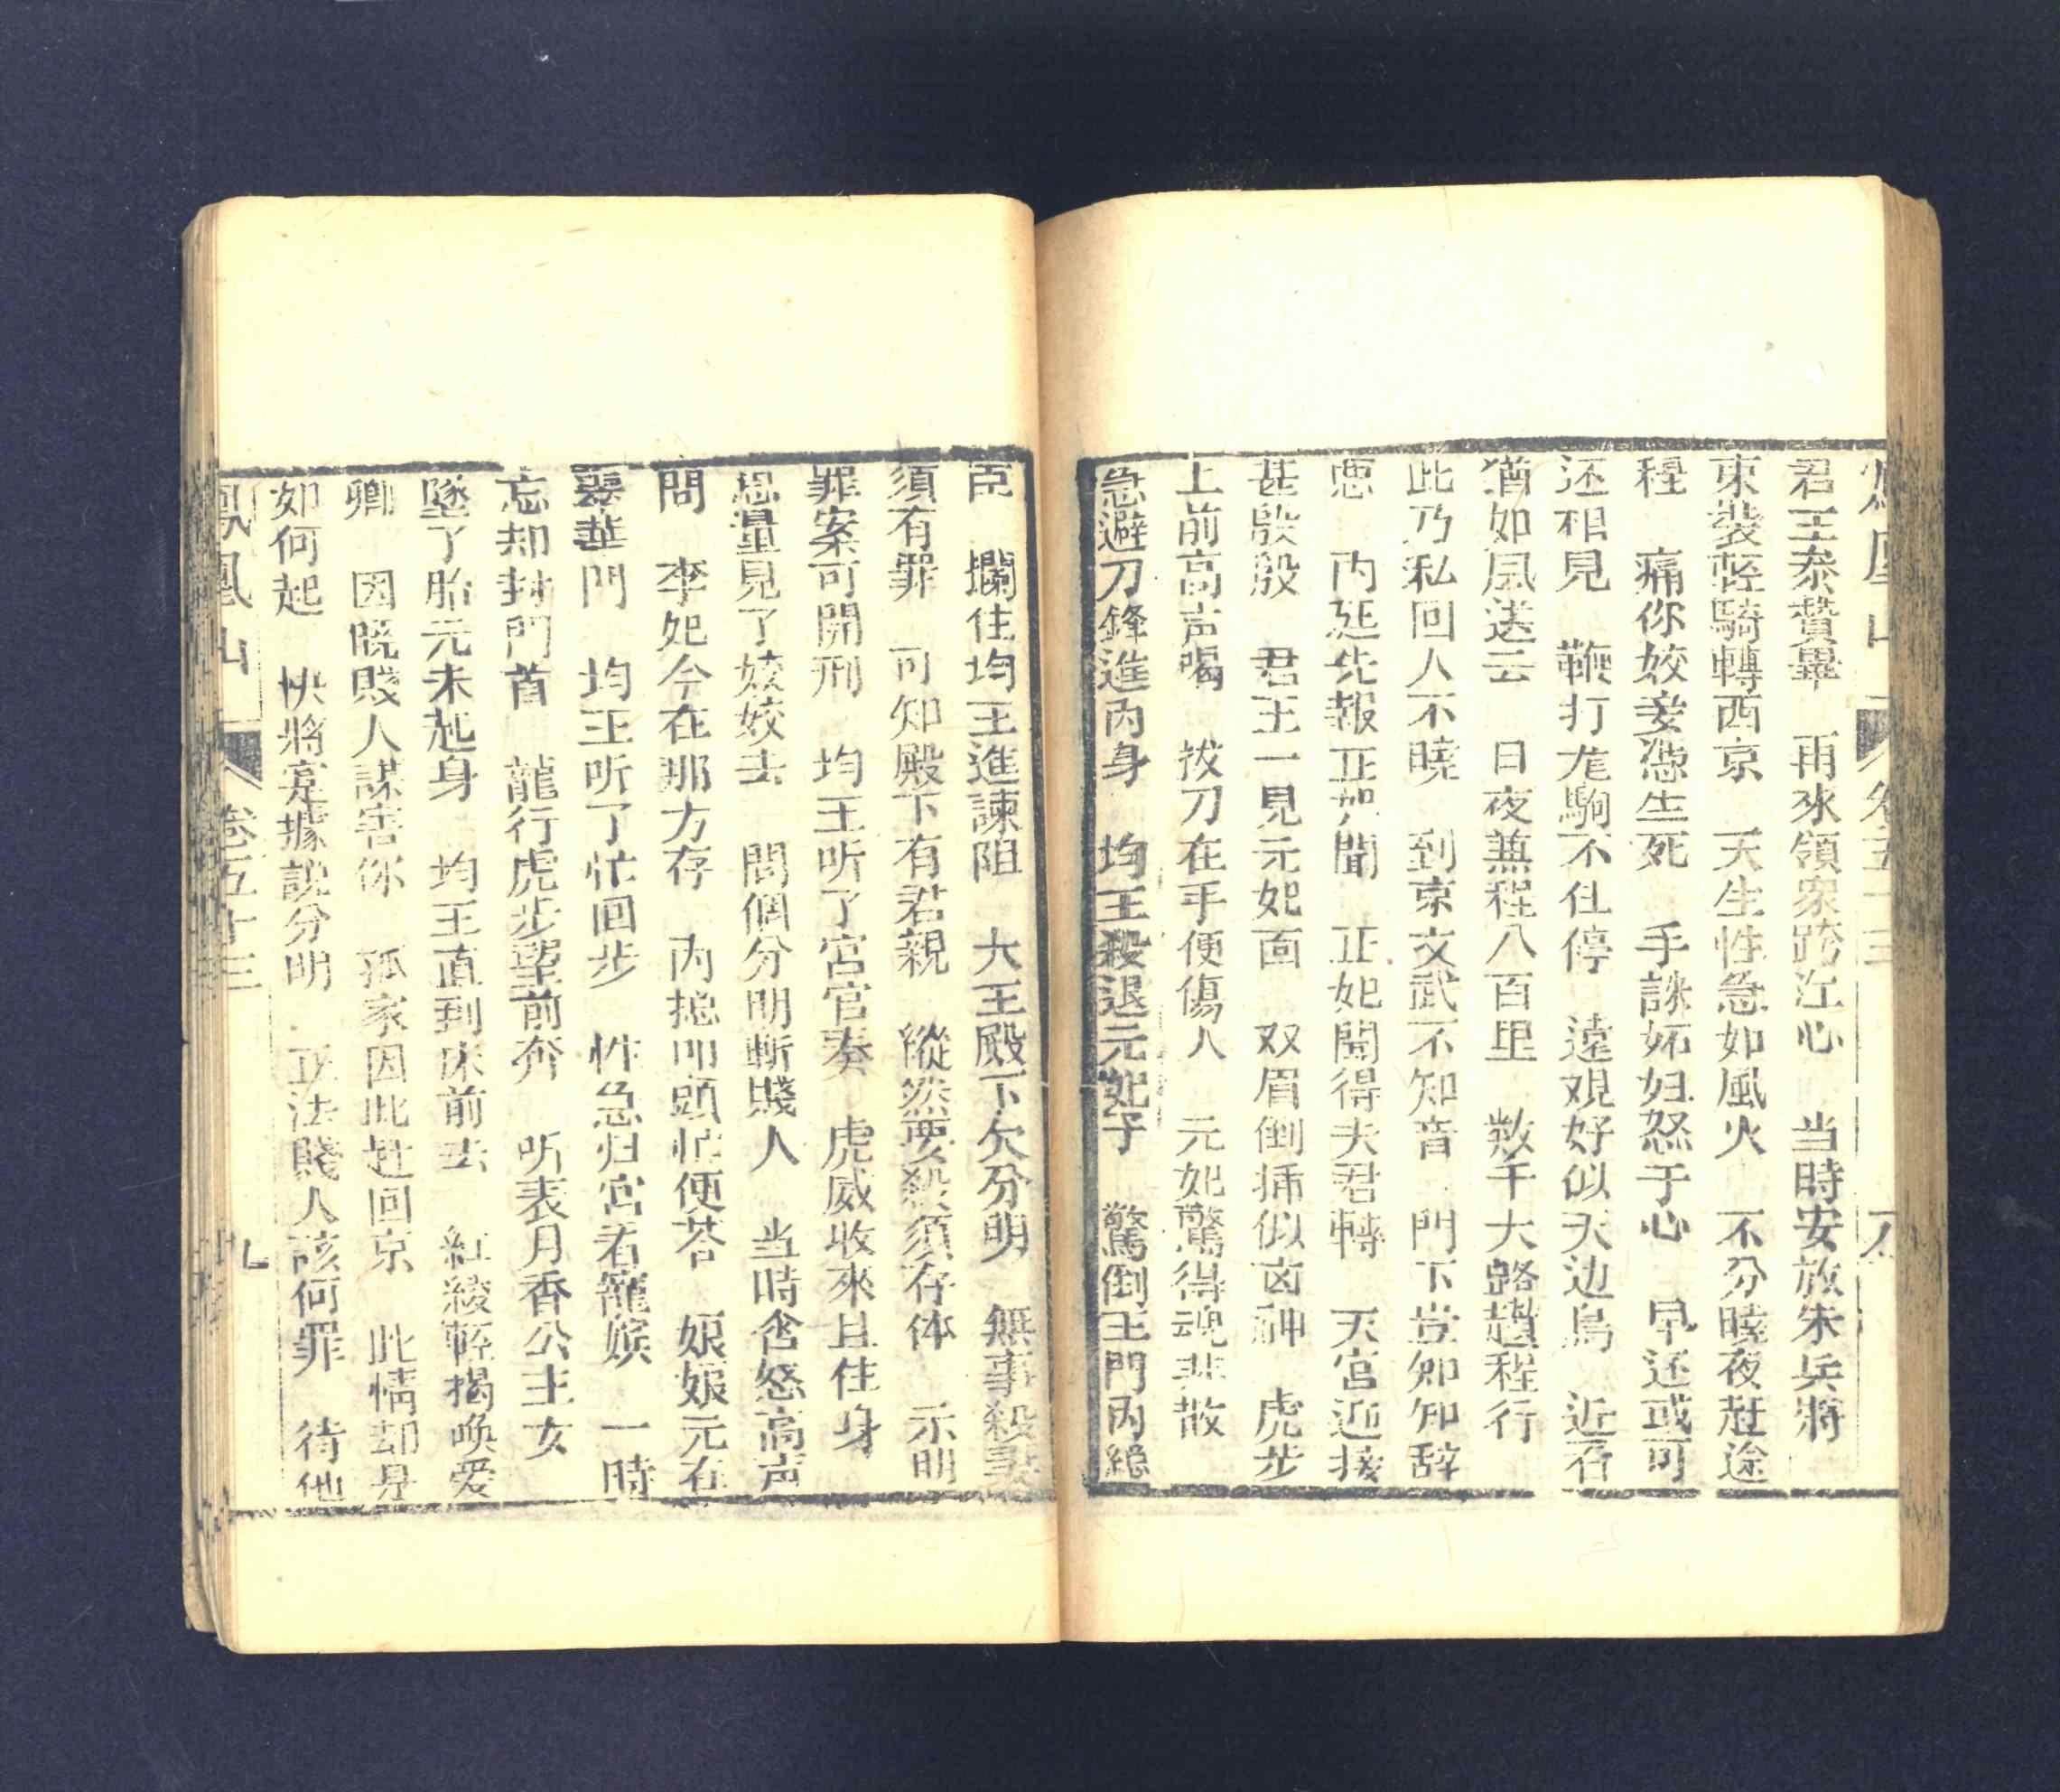 鳳凰山 卷五十三 八
君王泰贊畢　再來領衆跨江心　当時安放朱兵將
束裝輕騎轉西京　天生性急如風火　不分曉夜赶途
程　痛你姣妾憑生死　手誅妬妇怒于心　早还或可
还相見　鞭打龙駒不住停　遠观好似天边鳥　近看
猶如風送云　日夜無程八百里　数千大路趲程行
此乃私回人不曉　到京文武不知音　門下豈知知辞
悪　内廷先報正妃聞　正妃聞得夫君轉　天宮迎接
甚殷殷　君王一見元妃面　双眉倒插似凶神　虎步
上前高声喝　拔刀在手便傷人　元妃驚得魂非散
急避刀鋒進内身　均王殺退元妃子　驚倒王門内總
臣　攔住均王進諫阻　大王殿下欠分明　無事殺妻
須有罪　可知殿下有君親　縱然要殺須存体　示明
罪案可開刑　均王听了宮官奏　虎威收來且住身
思量見了姣姣去　問個分明斬賤人　当時含怒高声
問　李妃今在那方存　内摠叩頭忙便荅　娘娘元在
蘂華門　均王听了忙回步　性急归宮看寵嫔　一時
忘却封門首　龍行虎步望前奔　听表月香公主女
墜了胎元未起身　均王直到床前去　紅綾輕揭喚爱
卿　因既賤人謀害你　孤家因此赶回京　此情却是
如何起　快將寔據説分明　正法賤人該何罪　待他
鳳凰山 卷五十三 九